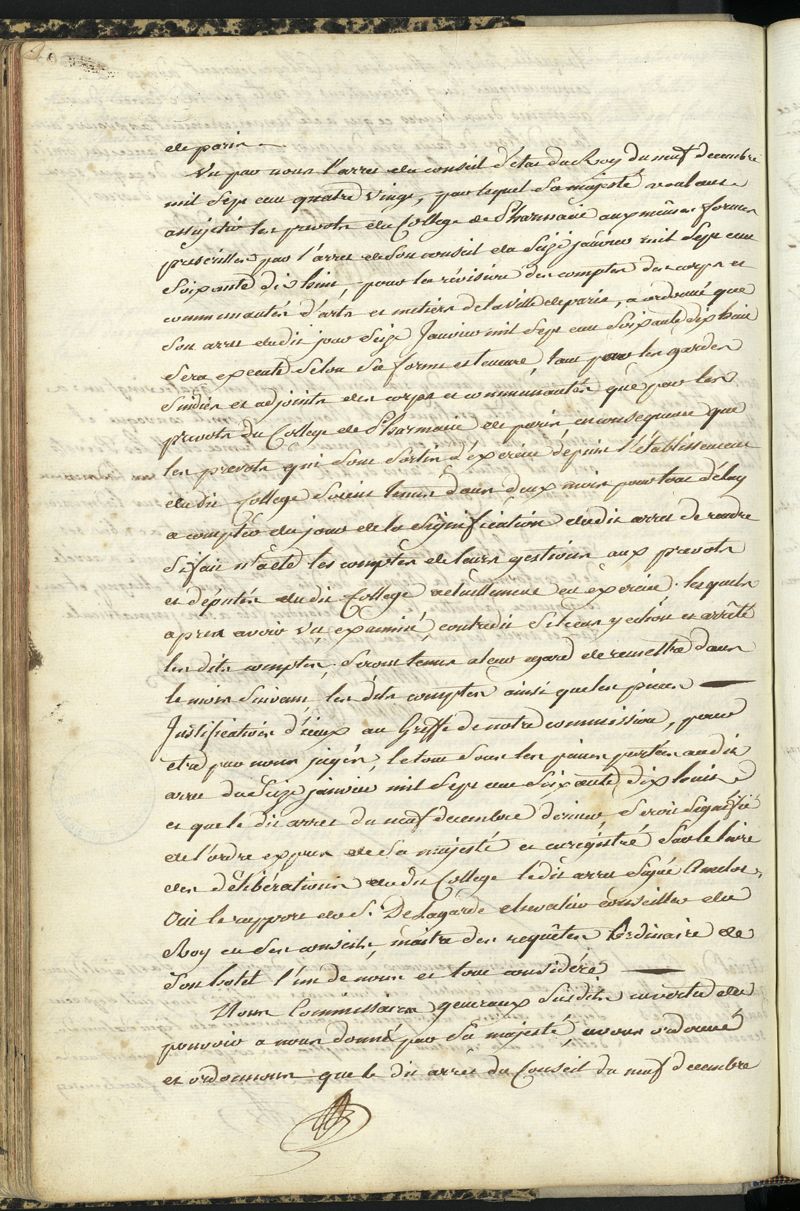 de paris —
Vu par nous l'arret du conseil d'état du Roy du neuf decembre
mil sept cent quatre vingt, par lequel sa majesté voulant
assujetir les prevots du College de Pharmacie aux mêmes formes
prescrittes par l'arret de son conseil du Seize janvier mil sept cent
Soixante dix huit, pour la révision des comptes des corps et
communautés d'arts et metiers de la ville de paris, a ordonné que
son arret du dit jour Seize Janvier mil sept cent Soixante dix huit
sera executé selon sa forme et teneur, tant par les gardes
sindics et adjoints des corps et communautés que par les
prevots du College de Pharmacie de paris, en consequence que
les prevots qui sont sortis d'exercice depuis l'établissement
du dit College soient tenus dans deux mois pour tout délay
a compter du jour de la signification du dit arret de rendre
si fait n'a été les comptes de leurs gestions aux prevots
et députés du dit College actuellement en exercice, lesquels
apres avoir vu, examiné, contredit si le cas y echoit et arrêté
les dits comptes, seront tenus a leur egard de remettre dans
le mois suivant, les dits comptes ainsi que les pieces —
Justificatives d'iceux au Greffe de notre commission, pour
etre par nous jugés, le tout sous les peines portées au dit
arret du Seize janvier mil sept cent soixante dix huit
et que le dit arret du neuf decembre dernier, seroit signifié
de l'ordre exprès de Sa majesté et enregistré sur le livre
des délibérations du dit College ledit arret signé Amelot,
Oui le rapport du S.r De Lagarde chevalier conseiller du
Roy en ses conseils, maitre des requêtes ordinaire de
son hotel l'un de nous et tout considéré —
Nous Commissaires generaux susdits en vertu du
pouvoir a nous donné par Sa majesté, avons ordonné
et ordonnons que le dit arrêt du Conseil du neuf decembre